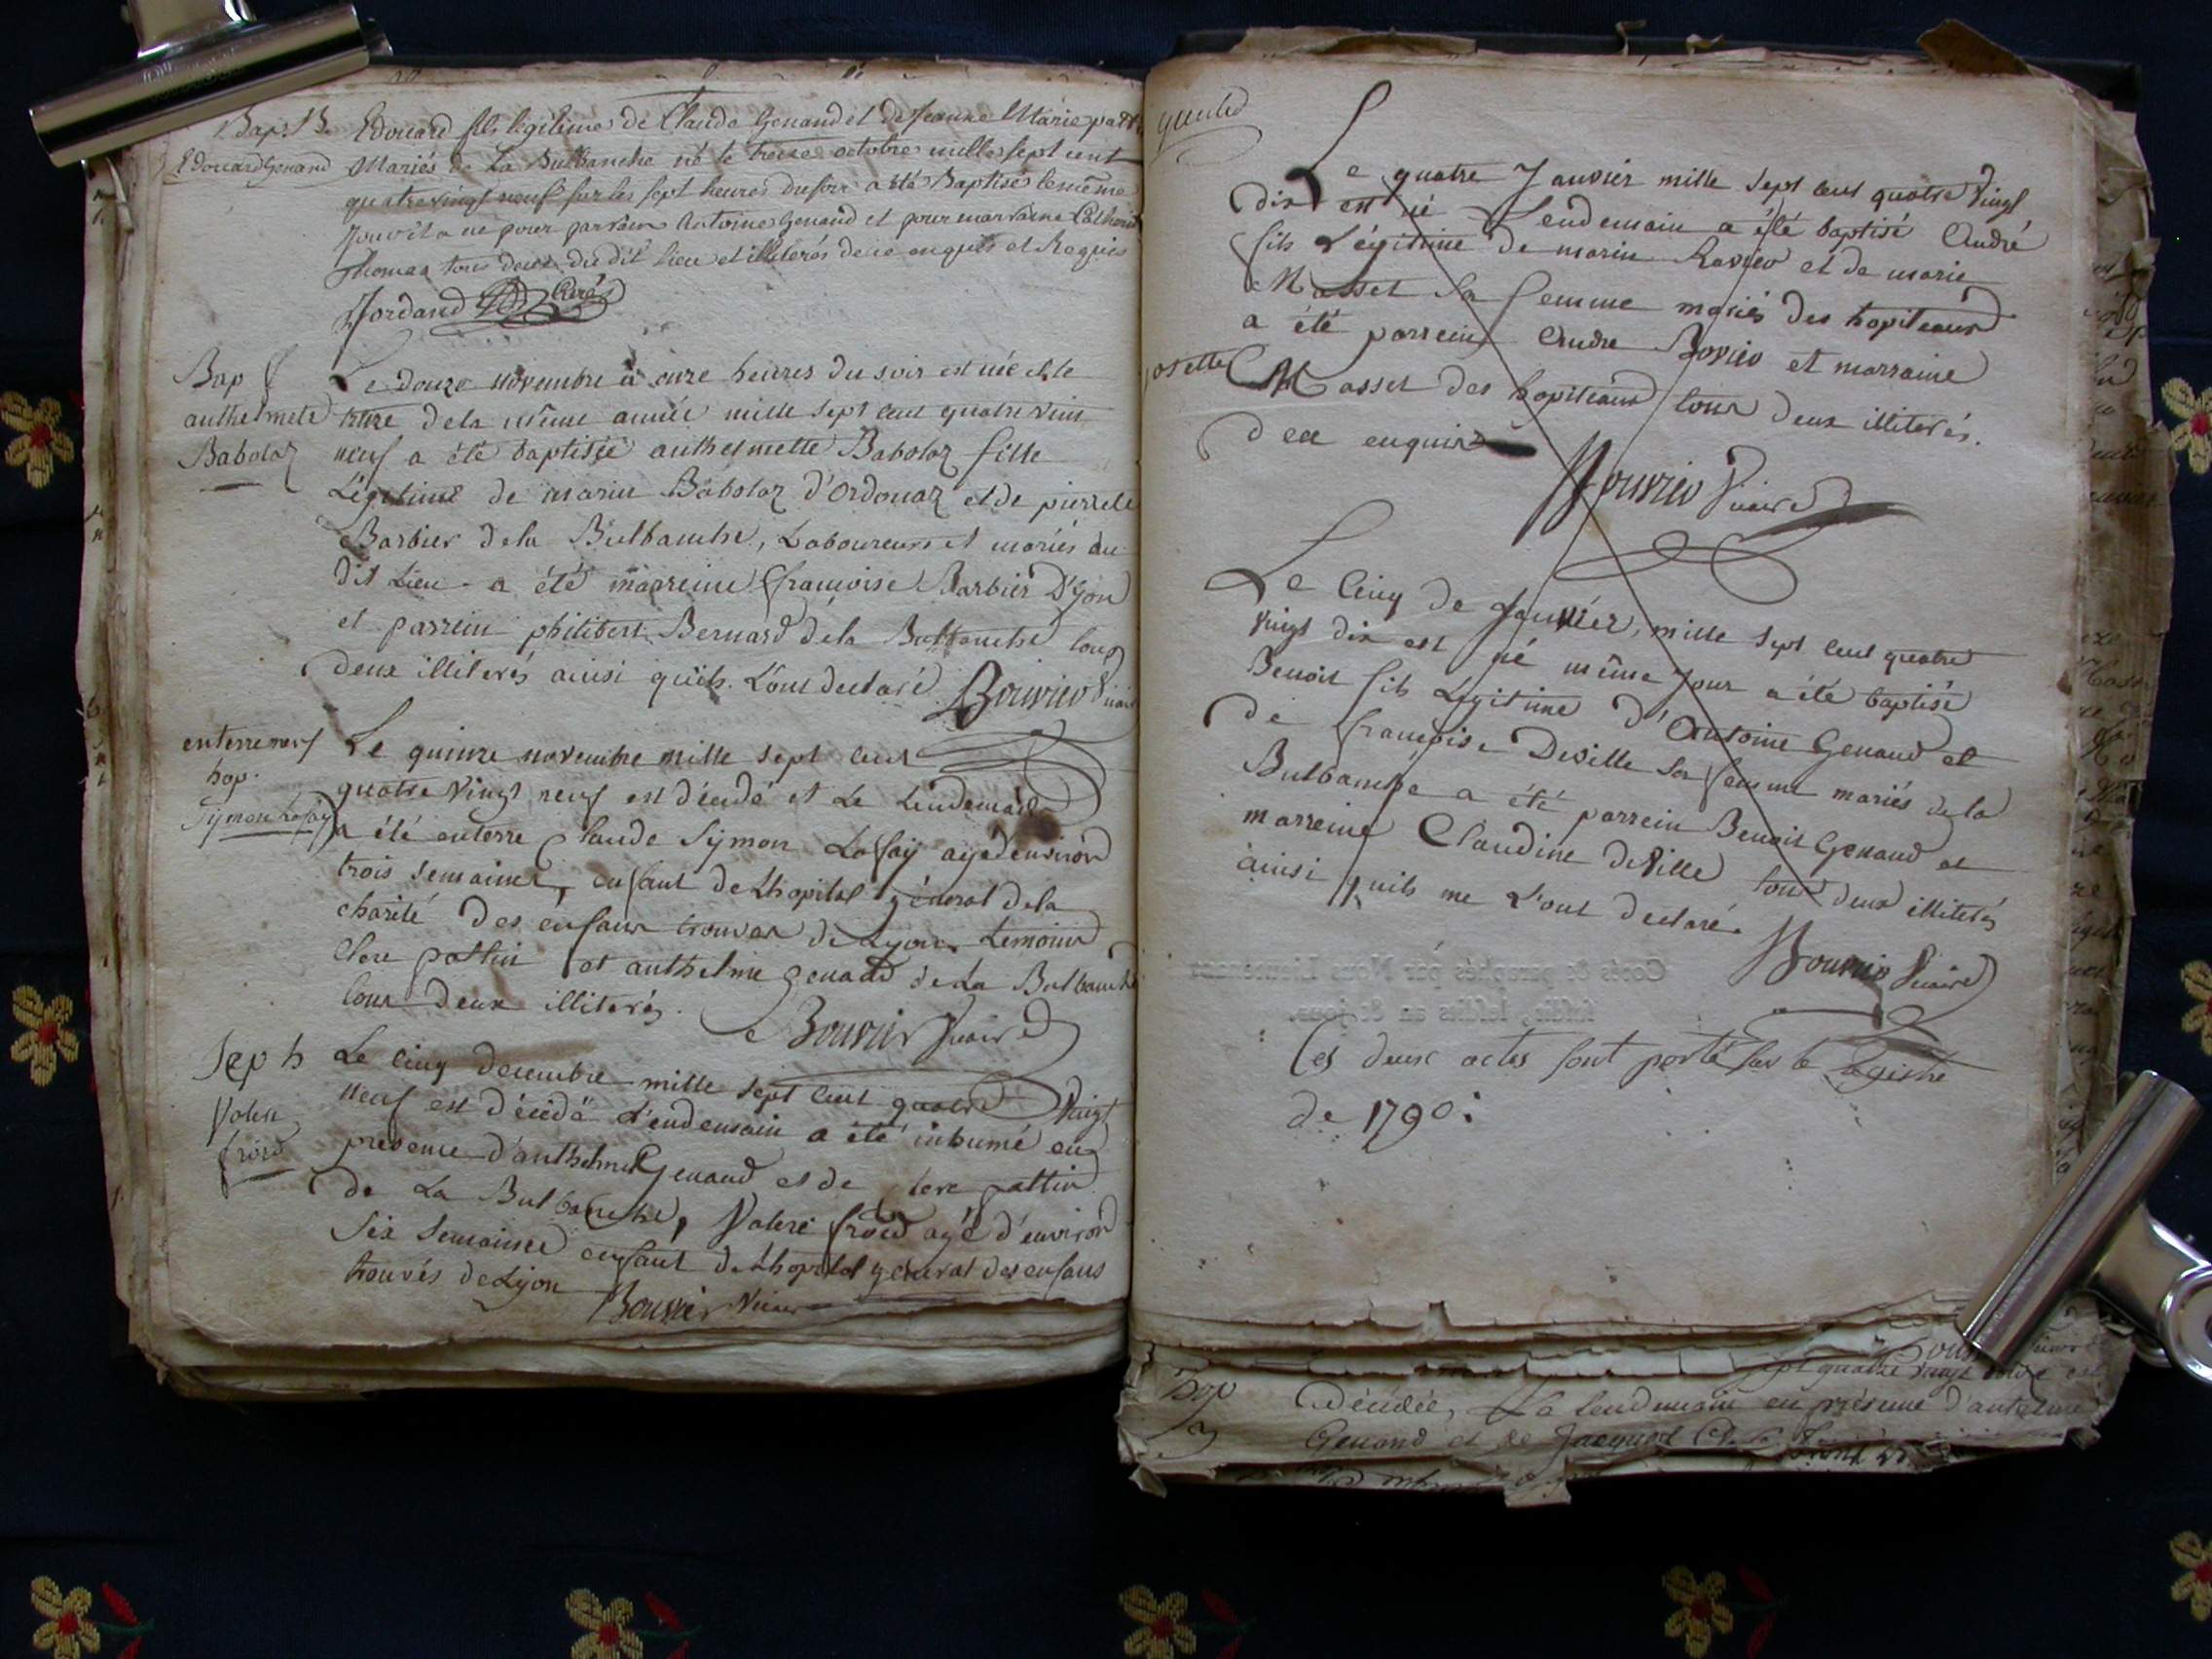 Bap. 13. Edouard fils legitime de Claude Genaud et de Jeanne Marie
Edouard Genaud Mariés de La Bulbanche né le treize octobre mille sept cent
quatrevingt neuf sur les sept heures du soir a été Baptisé le même
pour parrain Antoine Genaud et pour marraine
Thomas tous deux du dit lieu et illiterés de ce enquis et Requis
Jordand Curé
Bap f Le douze novembre a onze heures du soir est née et le
anthelmete treze de la même année mille sept cent quatre vint
Babolaz neuf a été baptisée anthelmette Babolaz fille
Légitime de marin Babolaz d'Ordonaz et de pierrete
Barbier de la Bulbanche, Laboureurs et mariés du
dit Lieu - a été marreine françoise Barbier D'yon
et parrein philibert Bernard de la Bulbanche tous
deux illiterés ainsi qu'ils L'ont declaré Bouvier vicaire
enterrement Le quinze novembre mille sept cent
hop. quatre vingt neuf est décedé et Le Lendemain
Symon Lafay a été enterre Claude Symon Lafay agé d'environ
trois semaines, enfant de Lhopital général de la
charité des enfans trouvés de Lyon. temoins
Clere pattin et anthelme genaud de La Bulbanche
tous deux illiterés.
Bouvier vicaire
Sep h Le cinq decembre mille sept cent quatre vingt
Valeri neuf est décedé L'endemain a été inhumé en
froid presence d'anthelme Genaud et de clere pattin
de La Bulbanche, Valeri froid agé d'environ
six semaines enfant de Lhopital general des enfans
trouvés de Lyon
Bouvier vicaire
Le quatre Janvier mille sept cent quatre vingt
dix est né Lendemain a été baptisé André
fils Légitime de marin Ravier et de marie
Masset sa femme mariés des hopiteaux
a été parrein Andre et marraine
Josette Masset des hopiteaux tous deux illiterés.
de ce enquis
Bouvier vicaire
Le Cinq de Janvier, mille sept cent quatre
vingt dix est né même Jour a été baptisé
Benoit fils Légitime d'Antoine Genaud et
de françoise Deville sa femme mariés de la
Bulbanche a été parrein Benoit Genaud et
marreine Claudine deville tous deux illiterés
ainsi quils me L'ont declaré.
Bouvier vicaire
Cotés & paraphés par Nous Lieutenant
Ces deux actes sont porté sur le Registre
de 1790.
sept quatre vingt est
hop décédée, Le lendemain en présence d'antelme
Genand et de Jacques